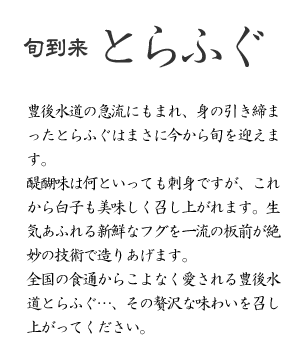 旬到来 とらふぐ
豊後水道の急流にもまれ、身の引き締ま
ったとらふぐはまさに今から旬を迎えま
す。
醍醐味は何といっても刺身ですが、これ
から白子も美味しく召し上がれます。生
気あふれる新鮮なフグを一流の板前が絶
妙の技術で造りあげます。
全国の食通からこよなく愛される豊後水
道とらふぐ…、その贅沢な味わいを召し
上がってください。